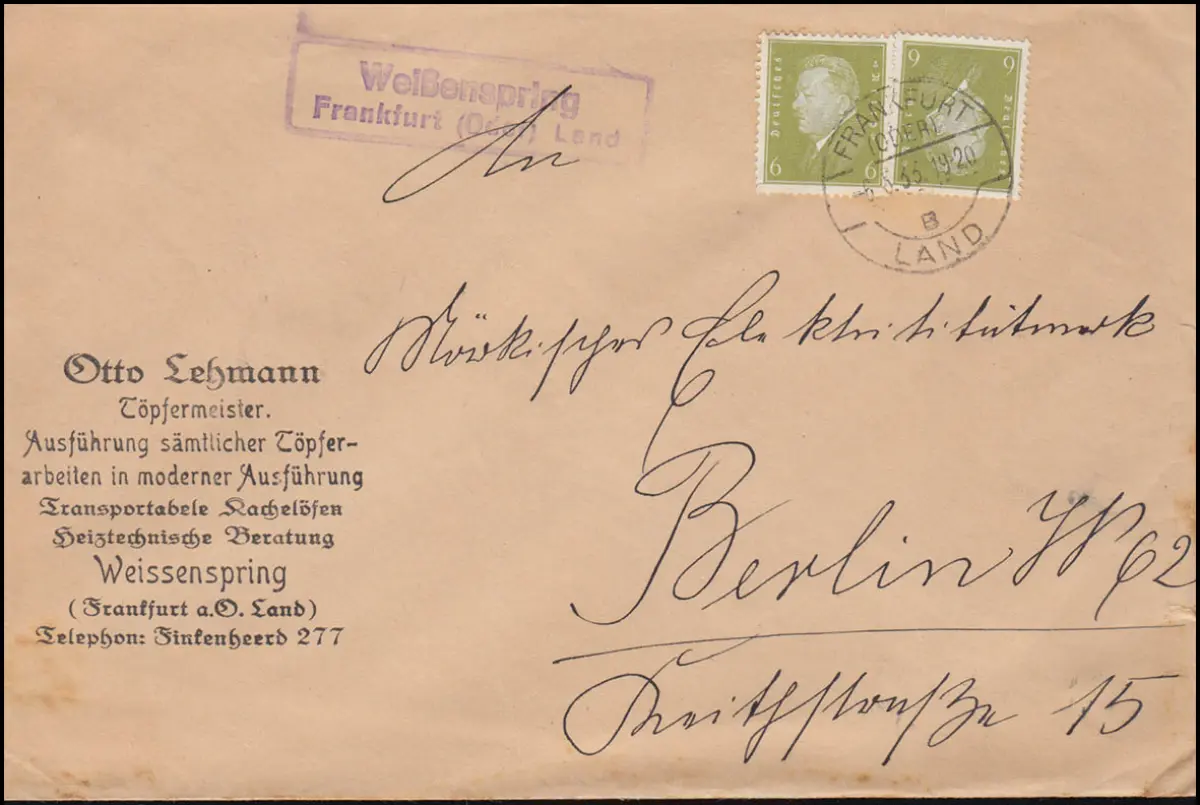 Weißenspring
Frankfurt (Oder) Land
Deutsches Reich
6 6
FRANKFURT
(ODER)
6.33.19-20
B
LAND
An
Märkisches Elektrititätwerk
Berlin W 62
Keithstraße 15
Otto Lehmann
Töpfermeister.
Ausführung sämtlicher Töpfer-
arbeiten in moderner Ausführung
Transportabele Kachelöfen
Heiztechnische Beratung
Weissenspring
(Frankfurt a.O. Land)
Telephon: Finkenheerd 277